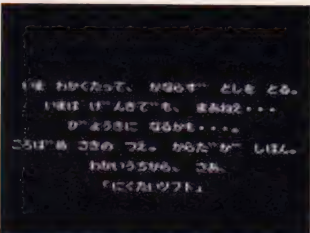 いま わかくたって、 かならず としを とる。
いまは げんきでも、 まあねえ・・・
びょうきに なるかも・・・。
ころばぬ さきの つえ。 からだが しほん。
わかいうちから、 さあ、
『にくたいソフト』